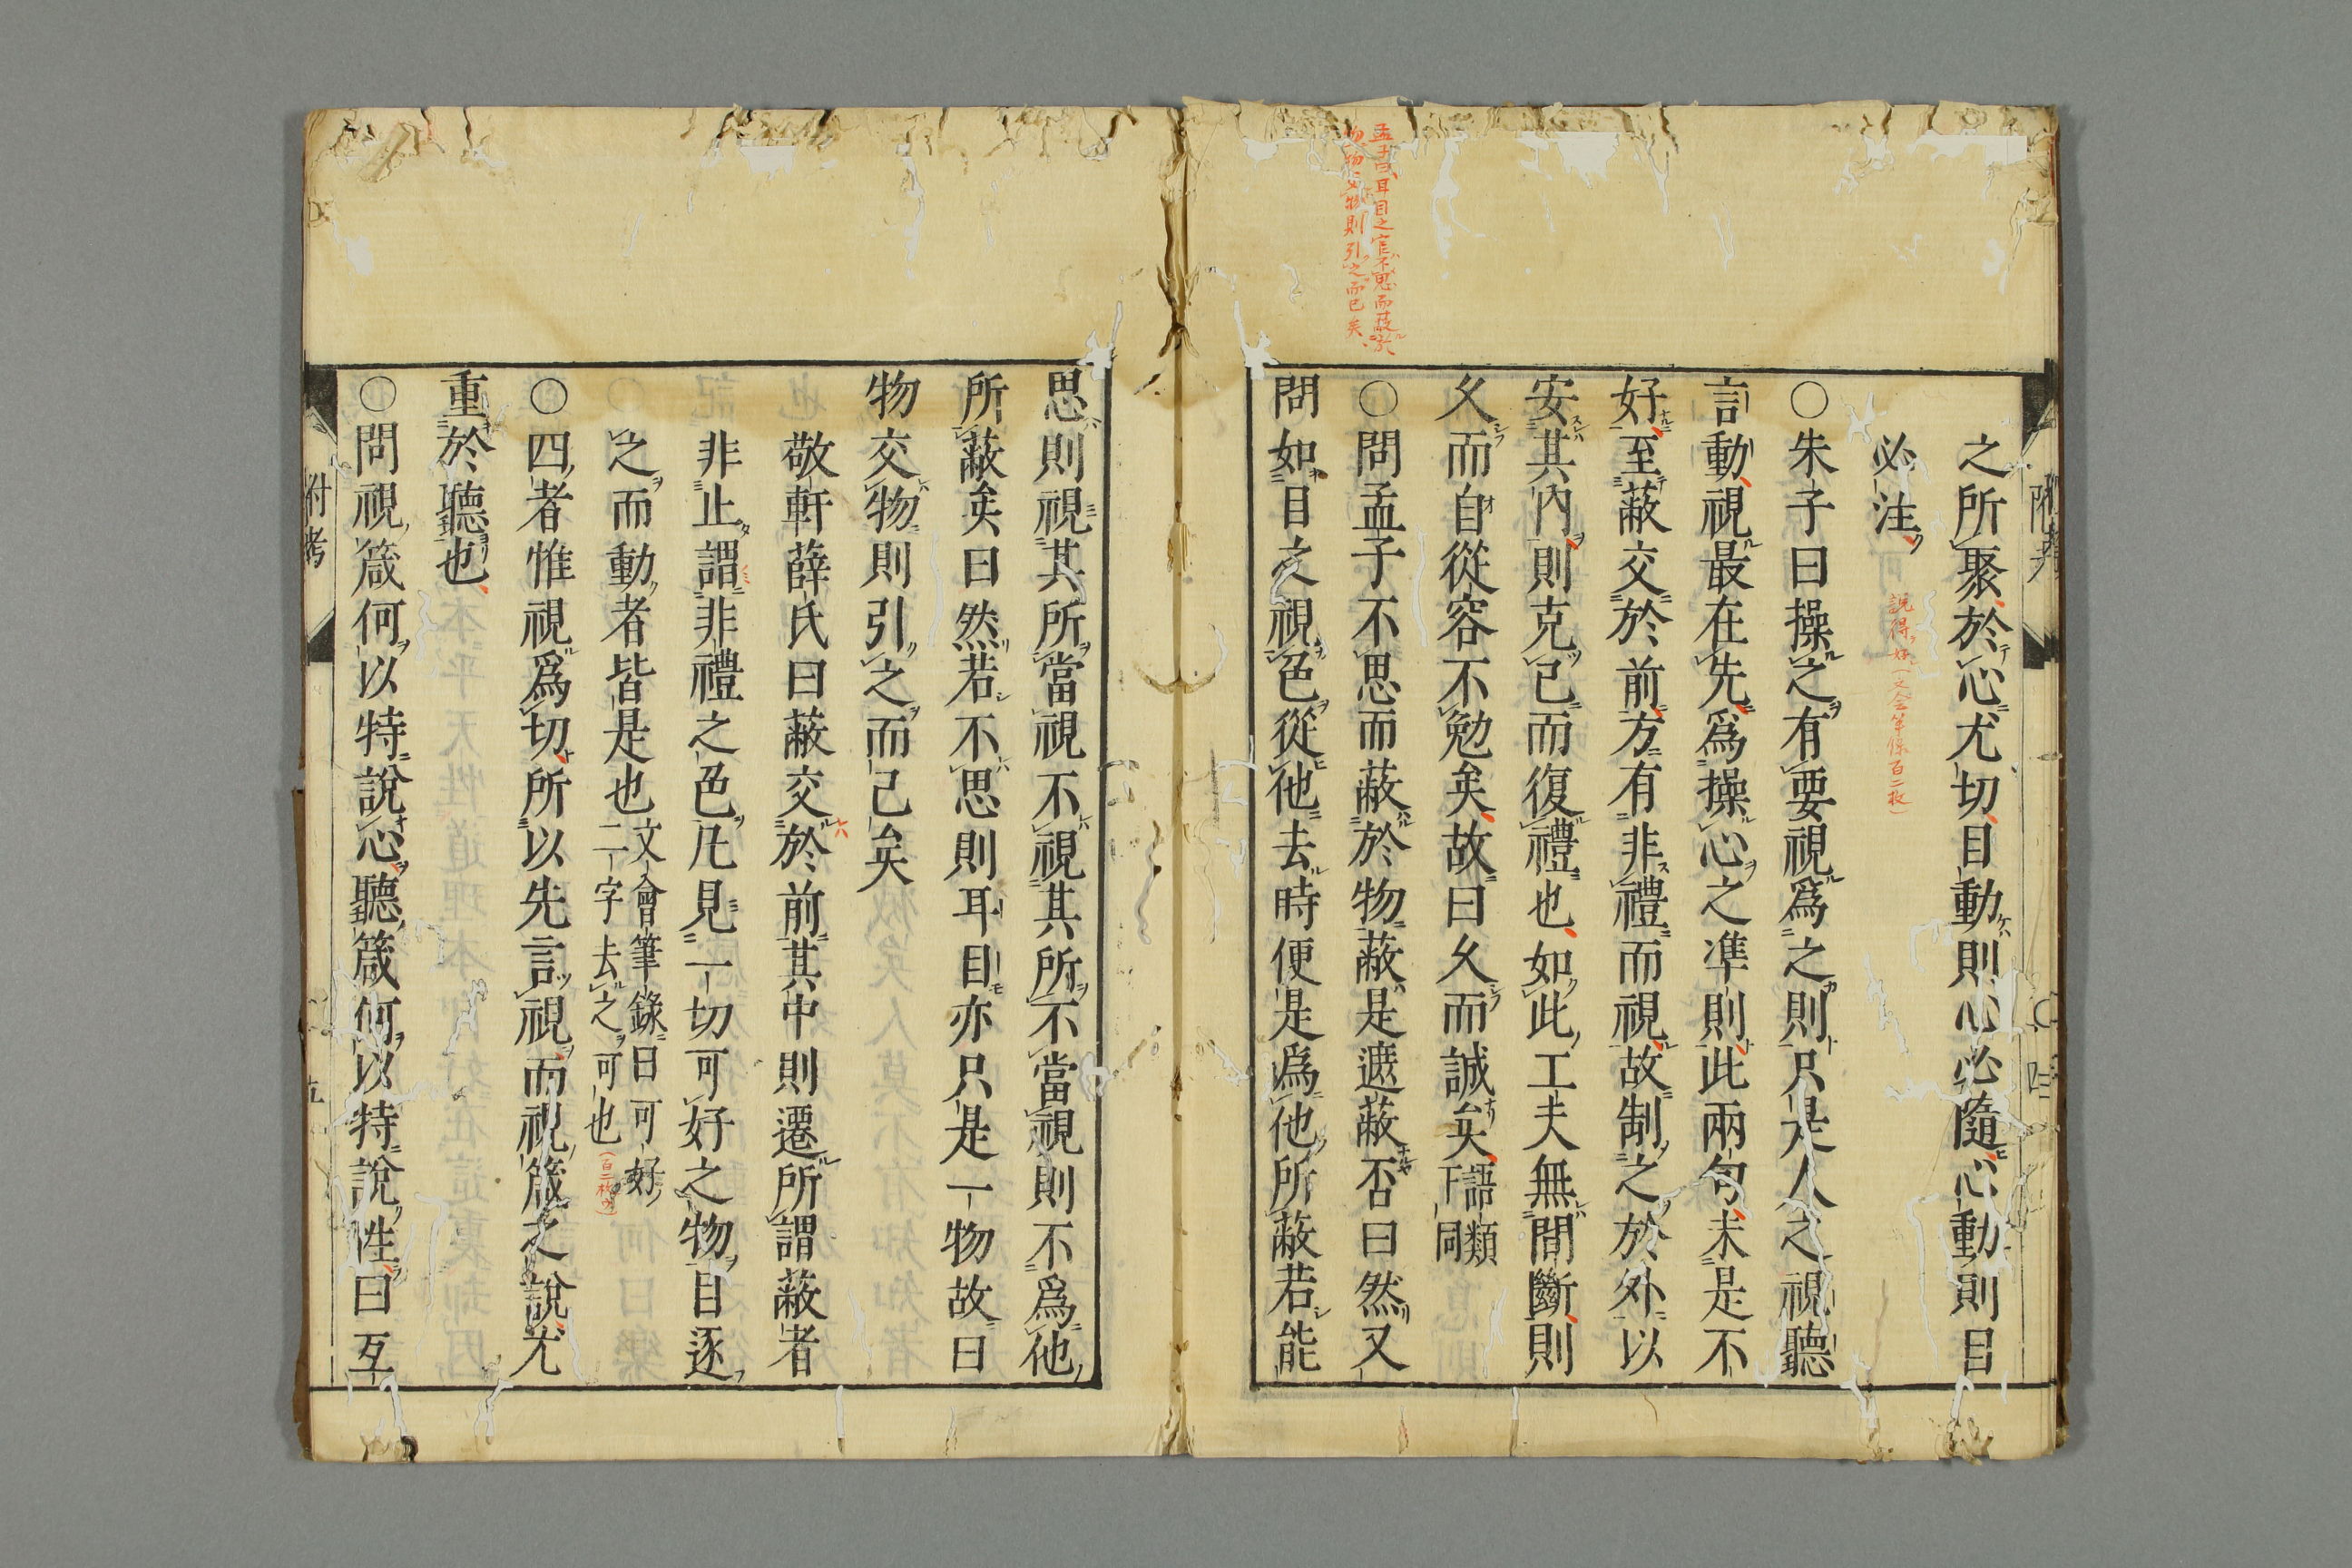 孟子曰耳目之官不思而蔽於
物物交物則引之而已矣
附考
四
之所聚於心尤切目動則心必隨心動則目
必注
說得好(文会筆録百二枚)
○朱子曰操之有要視爲之則只是人之視聽
言動視最在先爲操心之準則此兩句未是不
好至蔽交於前方有非禮而視故制之於外以
安其內則克己而復禮也如此工夫無間斷則
久而自從容不勉矣故曰久而誠矣語類
下同
○問孟子不思而蔽於物蔽是遮蔽否曰然又
問如目之視色從他去時便是爲他所蔽若能
思則視其所當視不視其所不當視則不爲他
所蔽矣曰然若不思則耳目亦只是一物故曰
物交物則引之而已矣
敬軒薛氏曰蔽交於前其中則遷所謂蔽者
非止謂非禮之色凡見一切可好之物目逐
之而動者皆是也文會筆錄曰可好
二字去之可也
○四者惟視爲切所以先言視而視箴之說尤
重於聽也
○問視箴何以特說心聽箴何以特說性曰互
附考
五